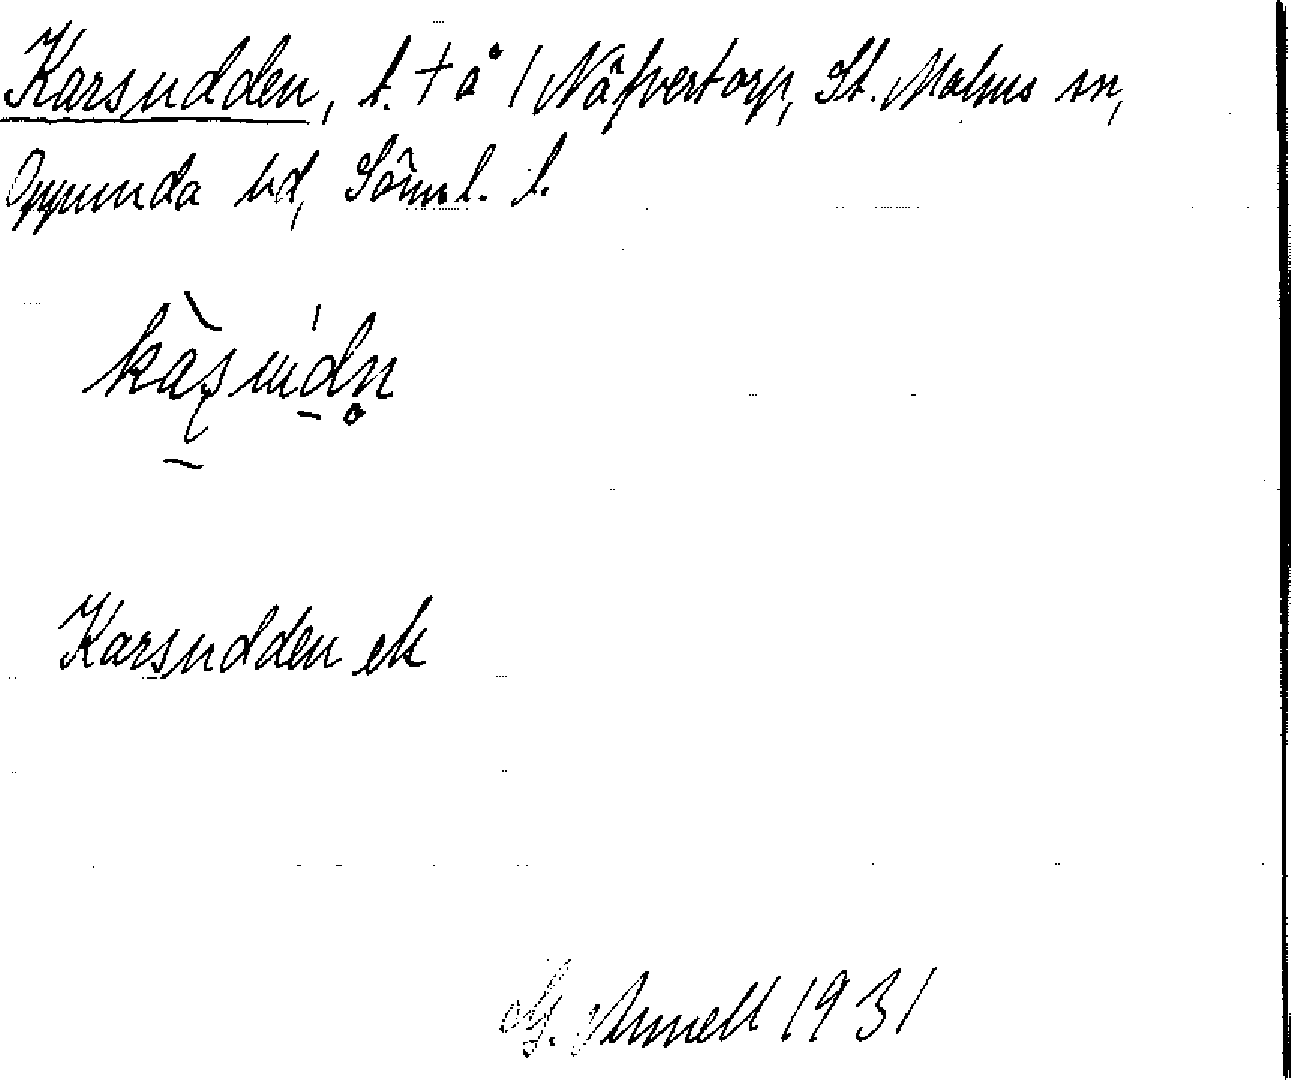 Karsudden, t. + å / Näfvertorp, St. Malms sn,
Oppunda hd, Söml. l.
kàʂudn̥
Karsudden ek
Arnell 1931